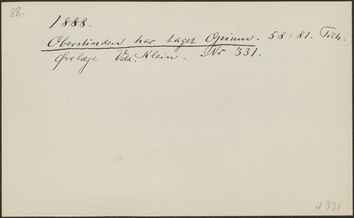 28.
1888.
Obersinden har taget Opium. 58 : 81. Fich.
Forlage Edv. Klein. Nr 331.
a 331